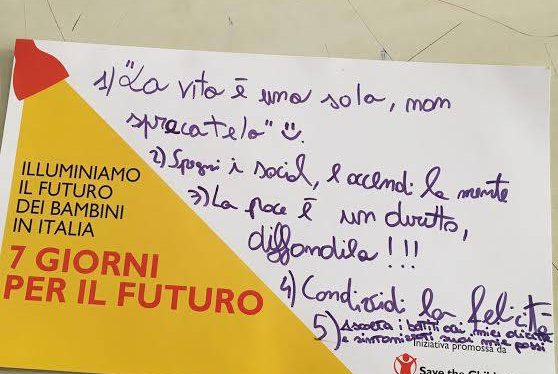 1) "La vita è una sola, non
sprecatela" ☺.
2) Spegni i social, e accendi la mente
3) La pace è un diritto,
diffondila!!!
4) Condividi la felicit
5) Ascolta i battiti dei miei diritti
e sintonizzati sui miei passi
ILLUMINIAMO
IL FUTURO
DEI BAMBINI
IN ITALIA
7 GIORNI
PER IL FUTURO
Iniziativa promossa da
Save the Chil